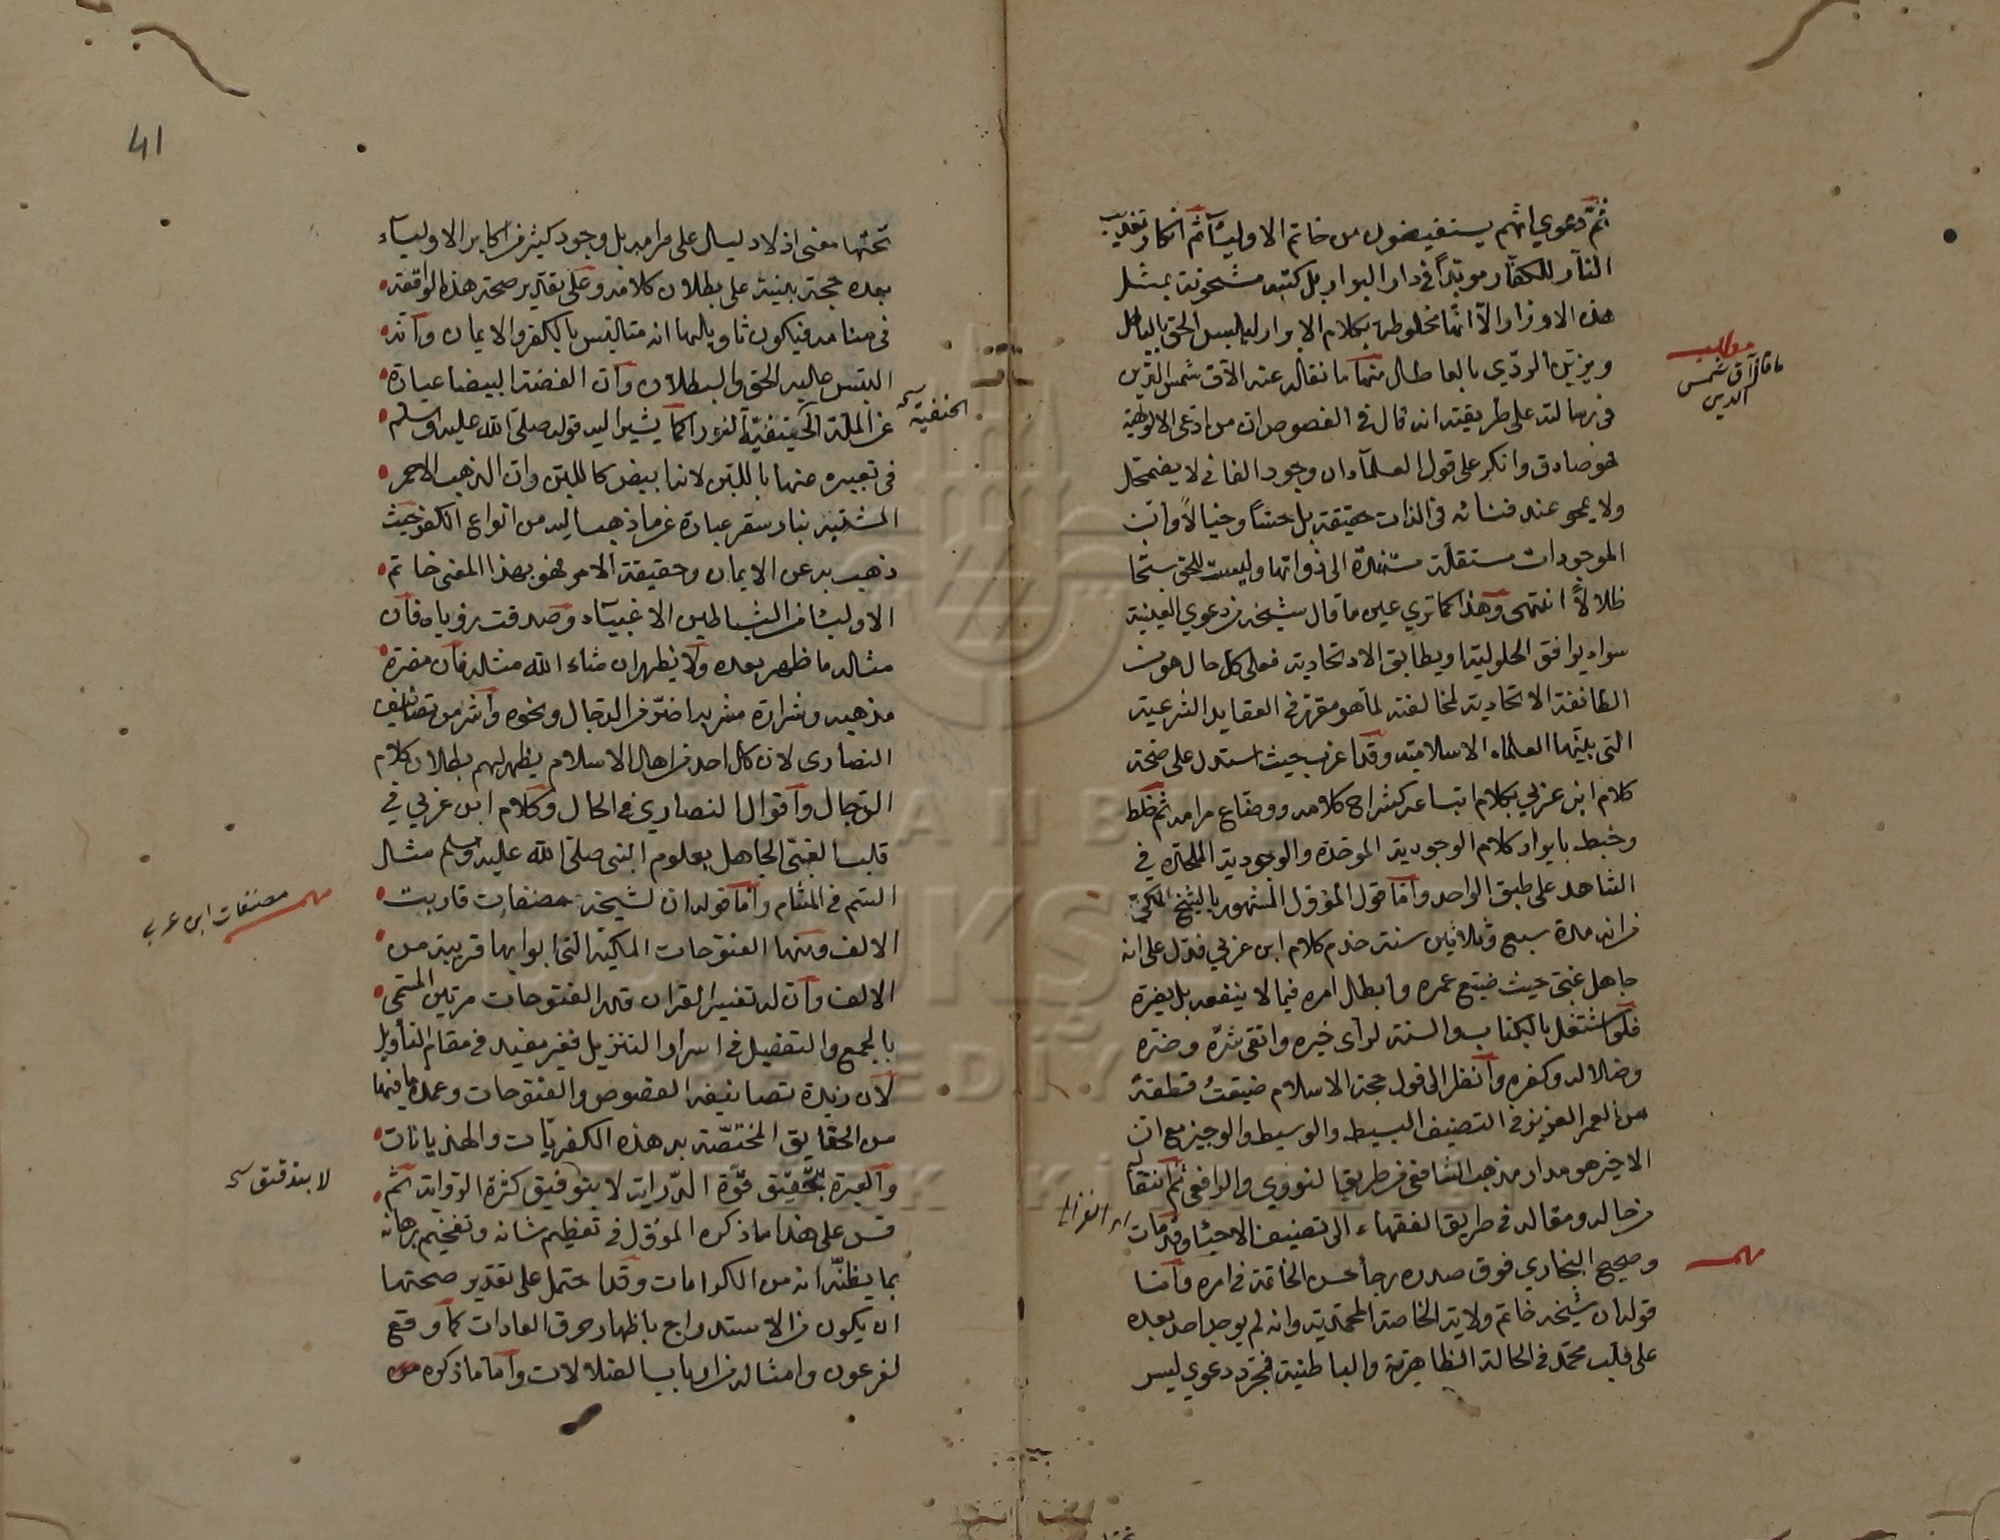 ثم دعوي انهم يستفيضون من خاتم الاوليآء ثم انكار تعذيب
النار للكفار مؤبداً في دار البوار بل كتبه مشحونة بمثل
هذه الاوزار الا انها مخلوطة بكلام الابرار ليلبس الحق بالباطل
ويزين الردي بالعاطل منها ما نقل عنه الآق شمس الدين
في رسالته على طريقته انه قال في الفصوص ان من ادعى الالوهية
فهو صادق وانكر على قول العلماء ان وجود الفاني لا يضمحل
ولا يمحو عند فنائه في الذات حقيقة بل حسّاً وخيالاً وان
الموجودات مستقلة مستندة الى ذواتها وليست للحق سبحانه
ظلالاً انتهى وهذا كما تري عين ما قال شيخه من دعوي العينية
سواء يوافق الحلولية او يطابق الاتحادية فعلى كل حال هو من
الطائفة الاتحادية لمخالفته لما هو مقرر في العقايد الشرعية
التي بينها العلماء الاسلامية وقد اغرب حيث استدل على صحة
كلام ابن عربي بكلام اتباعه كشراح كلامه ووضاع مرامه ثم خلط
وخبط بايراد كلام الوجودية الموحدة والوجودية الملحدة في
الشاهد على طبق الواحد واما قول المؤول المشهور بالشيخ المكي
من انه مدة سبع وثلاثين سنة خدم كلام ابن عربي فدل على انه
جاهل غبي حيث ضيع عمره وابطل امره فيما لا ينفعه بل يضره
فلو اشتغل بالكتاب والسنة لرأى خيره واتقى شره وضره
وضلاله وكفره وانظر الى قول حجة الاسلام ضيعت قطعة
من العمر العزيز في التصنيف البسيط والوسيط والوجيز مع ان
الاخير هو مدار مذهب الشافعي من طريق النووي والرافعي ثم انتقل
من حاله ومقاله في طريق الفقهاء الى تصنيف الاحياء وقد مات
وصحيح البخاري فوق صدره رجأ حسن الخاتمة في امره واما
قوله ان شيخه خاتم ولاية الخاصة المحمدية وانه لم يوجد احد بعده
على قلب محمد في الحالة الظاهرية والباطنية فمجرد دعوي ليس
مطلب
ما قال آق شمس
الدين
اى الغزالى
مهم
41
تحتها معنى اذ لا دليل على مرامه بل وجود كثير من اكابر الاولياء
بعده حجة بينة على بطلان كلامه وعلى تقدير صحة هذه الواقعة
في منامه فيكون تاويلها انه متالبس بالكفر والايمان وانه
التبس عليه الحق والبطلان وان الفضة البيضا عبارة
عن الملة الحنيفية النورا كما يشير اليه قوله صلى الله عليه وسلم
في تعبيره عنها باللبن لانه ابيض كاللبن وان الذهب الاحمر
المشبه بنار سقر عبارة عن ما ذهب اليه من انواع الكفر حيث
ذهب به عن الايمان وحقيقة الامر فهو بهذا المعنى خاتم
الاولياء من الشياطين الاغبياء وصدقت رؤياه فان
مثاله ما ظهر بعده ولا يظهر ان شاء الله مثله فان مضرة
مذهبه وشرارة مشربه اضر من الدجال ونحوه واشر من تصانيف
النصارى لان كل احد من اهل الاسلام يظهر لهم بطلان كلام
الدجال واقوال النصاري في الحال وكلام ابن عربي في
قلب الغبي الجاهل بعلوم النبي صلى الله عليه وسلم مثال
السم في المشام واما قوله ان لشيخه مصنفات قاربت
الالف ومنها الفتوحات المكية التي ابوابها قريبة من
الالف وان له تفسير القران قدر الفتوحات مرتين المسمى
بالجمع والتفصيل في اسرار التنزيل فغير مفيد في مقام التأويل
لان زبدة تصانيفه الفصوص والفتوحات وعمدة ما فيها
من الحقايق المختصة به هذه الكفريات والهذيانات
والعبرة بتحقيق قوة الدراية لا بتوفيق كثرة الرواية ثم
قس على هذا ما ذكره المؤول في تعظيم شانه وتفخيم برهانه
بما يظنه انه من الكرامات وقد احتمل على تقدير صحتها
ان يكون من الاستدراج باظهار خرق العادات كما وقع
لفرعون وامثاله من ارباب الضلالات واما ما ذكره من
الحنفية
مهم
مصنفات ابن عرب
لا بتدقيق